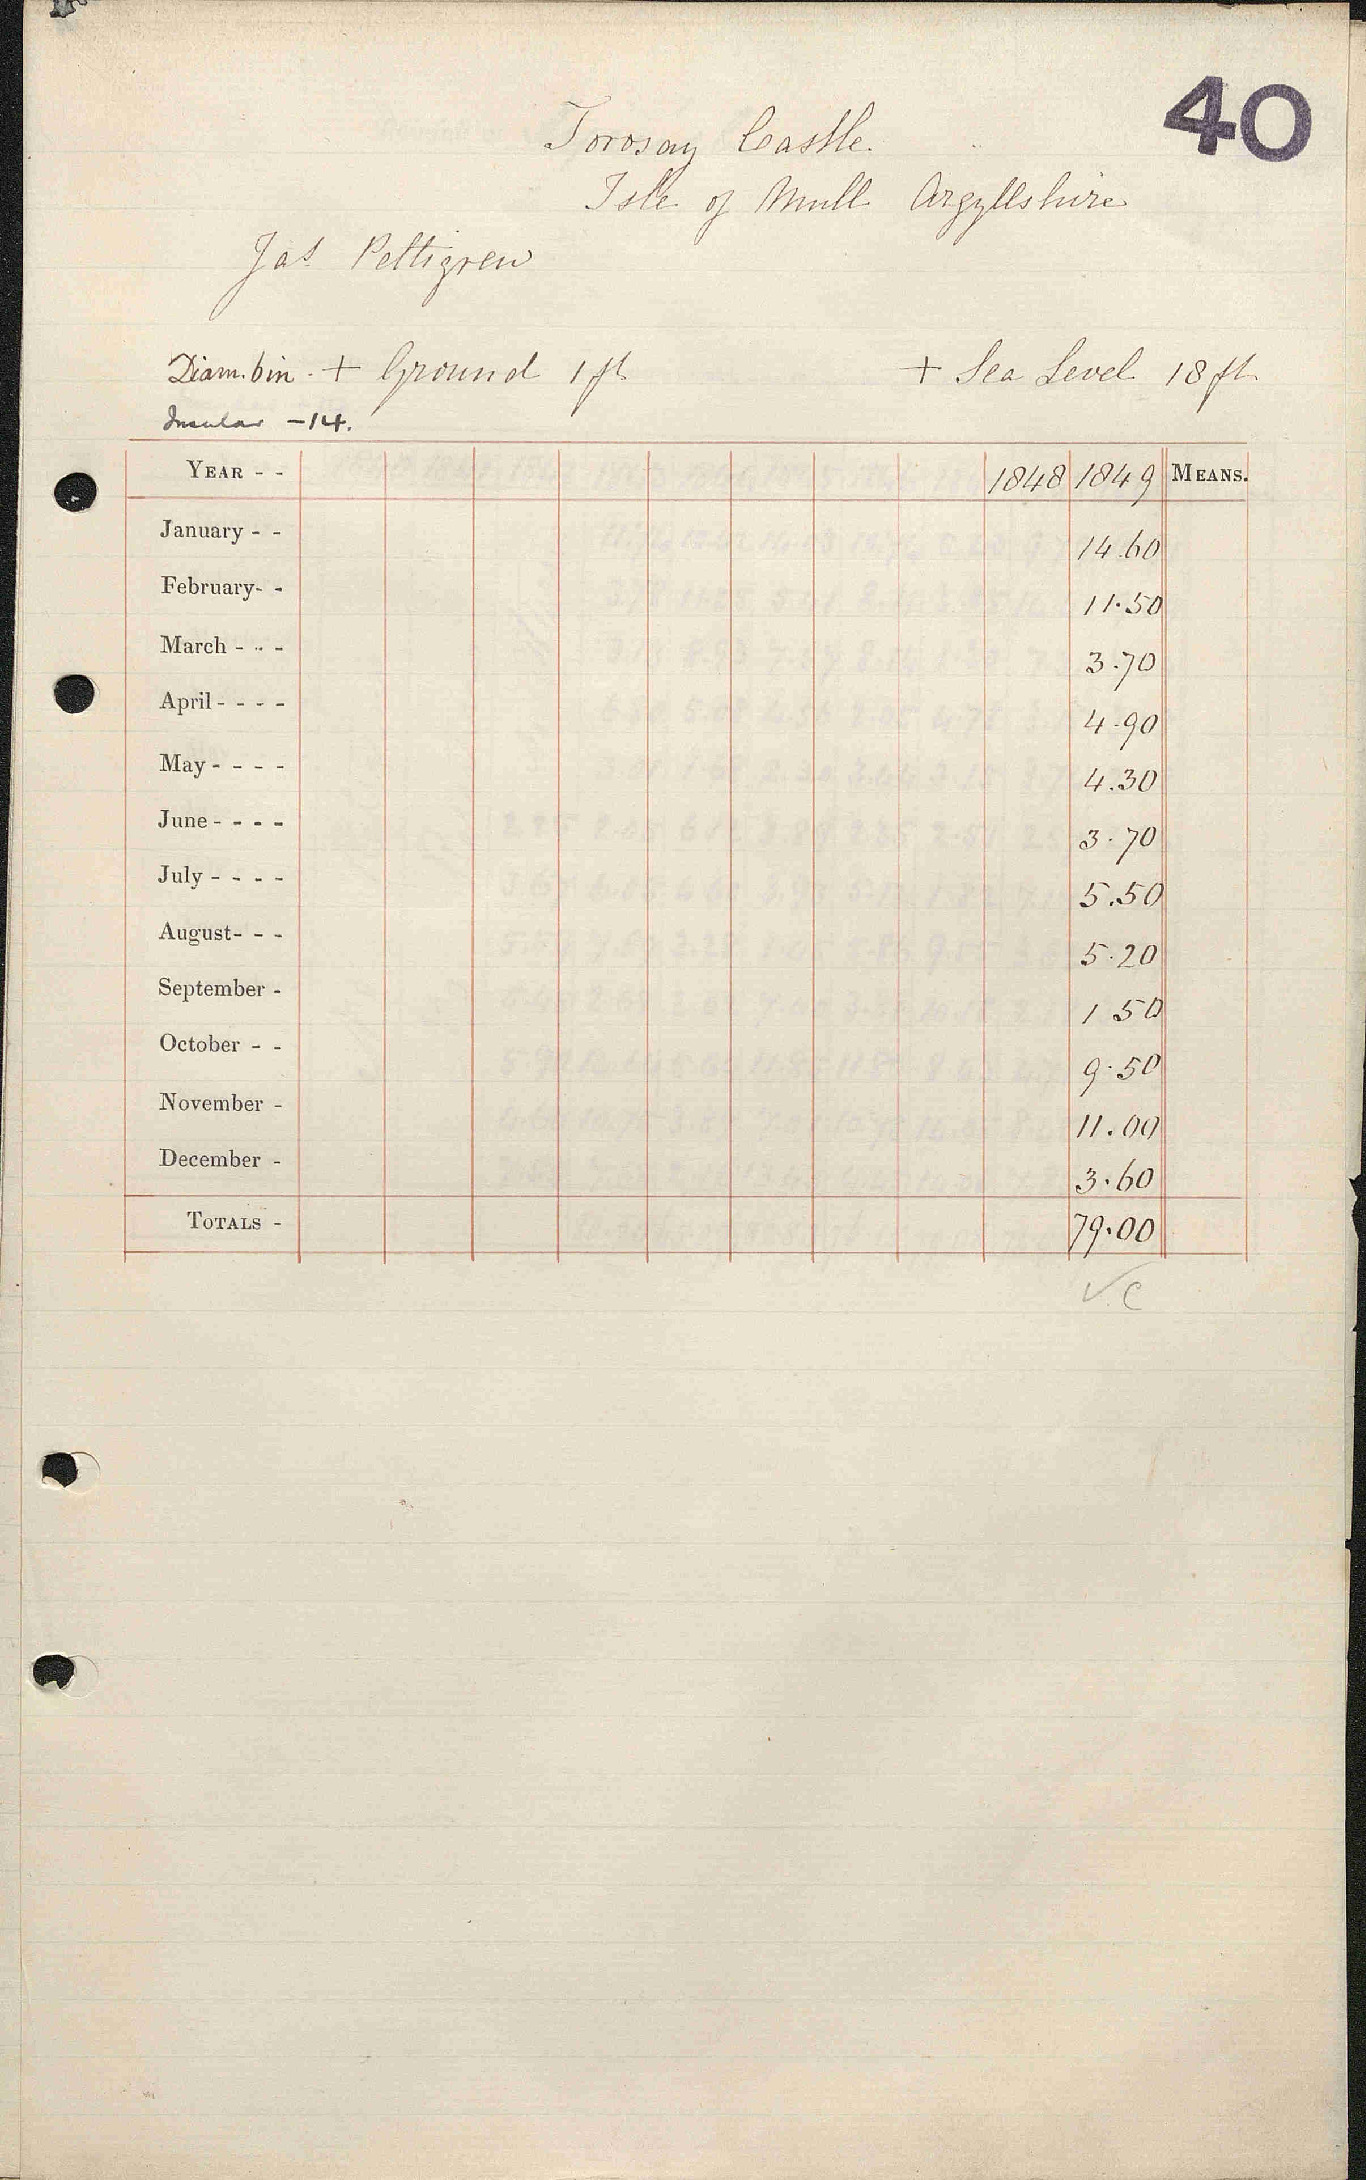 40
Torosay Castle.
Isle of Mull Argyllshire
Jas Pettigrew
Diam. 6in. + Ground 1 ft + Sea Level 18 ft
Insular -14.
YEAR - - 1848 1849 MEANS.
January - - 14.60
February- - 11.50
March - - - 3.70
April - - - - 4.90
May - - - - 4.30
June - - - - 3.70
July - - - - 5.50
August- - - 5.20
September - 1 50
October - - 9.50
November - 11.00
December - 3.60
TOTALS - 79.00
✓ C